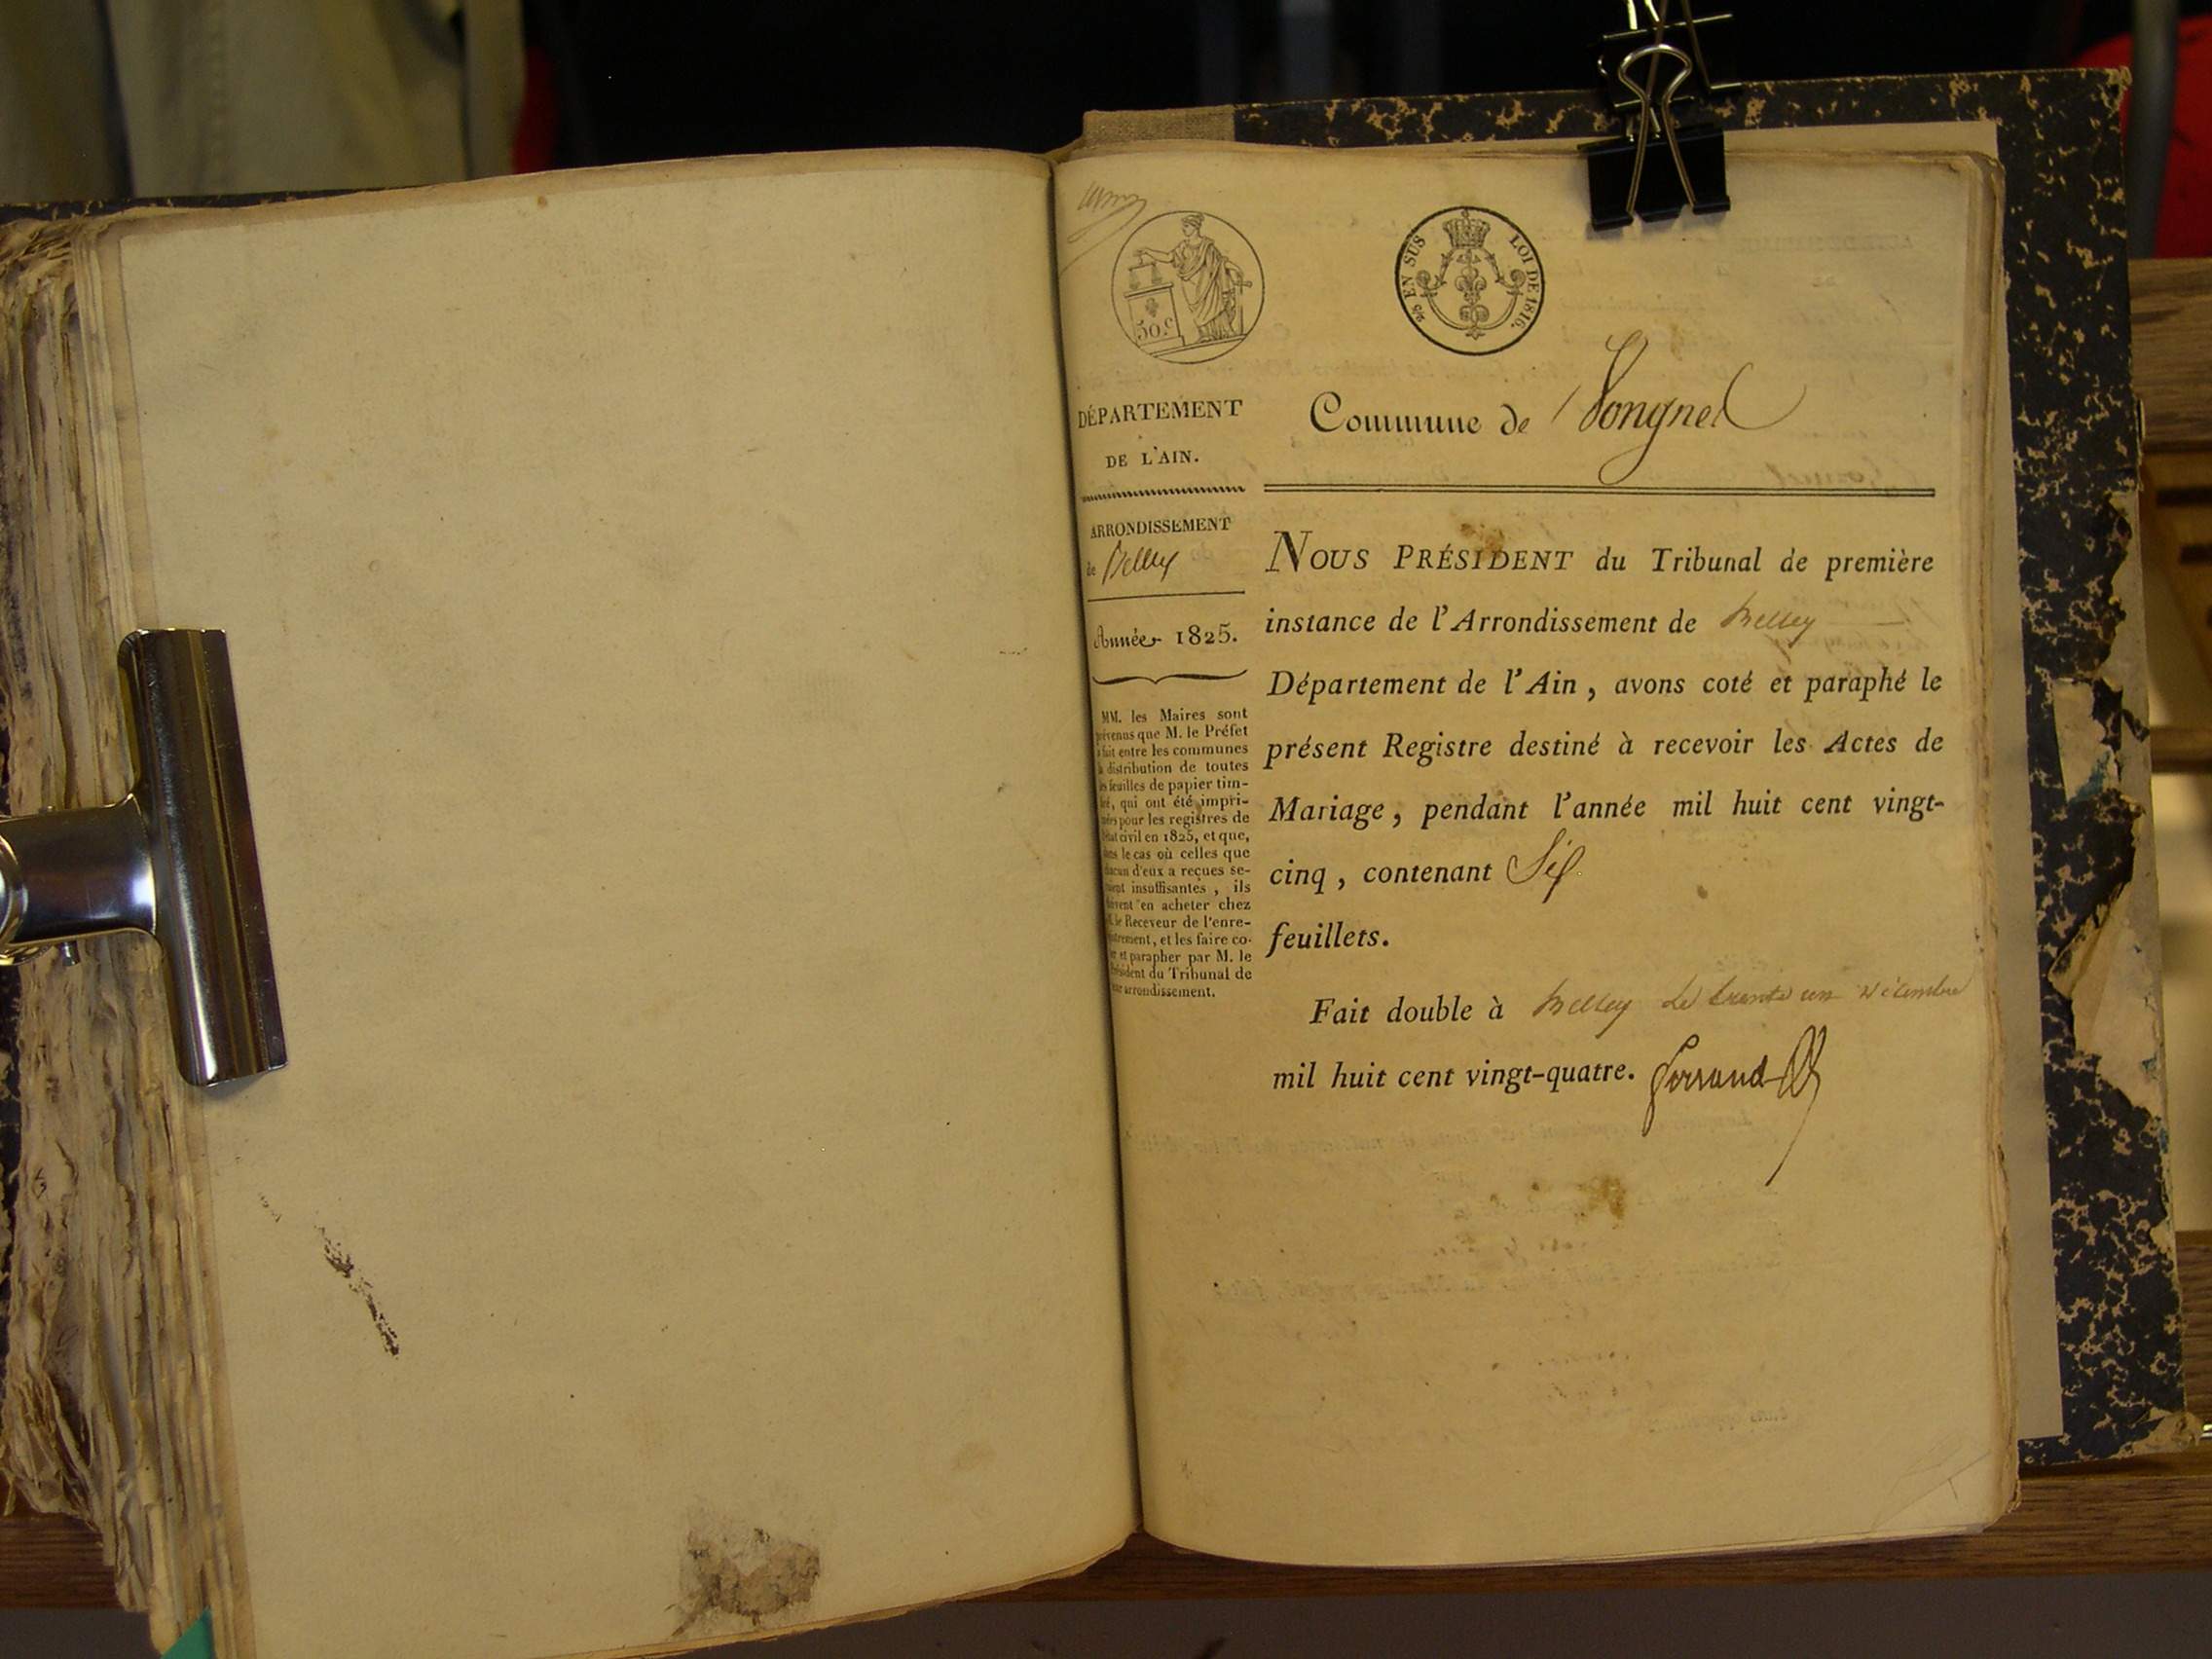 50.c
2/6 EN SUS LOI DE 1816.
DÉPARTEMENT
DE L'AIN.
Commune de Songneu
ARRONDISSEMENT
de Belley
Année 1825.
MM. les Maires sont
prévenus que M. le Préfet
a fait entre les communes
la distribution de toutes
les feuilles de papier tim-
bré, qui ont été impri-
mées pour les registres de
l'état civil en 1825, et que,
dans le cas où celles que
chacun d'eux a reçues se-
raient insuffisantes, ils
doivent en acheter chez
M. le Receveur de l'enre-
gistrement, et les faire co-
ter et parapher par M. le
Président du Tribunal de
leur arrondissement.
NOUS PRÉSIDENT du Tribunal de première
instance de l'Arrondissement de Belley
Département de l'Ain, avons coté et paraphé le
présent Registre destiné à recevoir les Actes de
Mariage, pendant l'année mil huit cent vingt-
cinq, contenant Six
feuillets.
Fait double à Belley le trente un décembre
mil huit cent vingt-quatre.